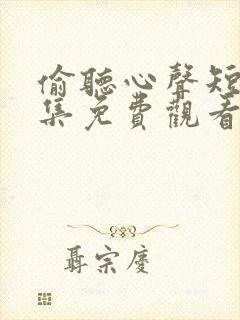 偷聽心聲短
集免費觀看
聶宗慶